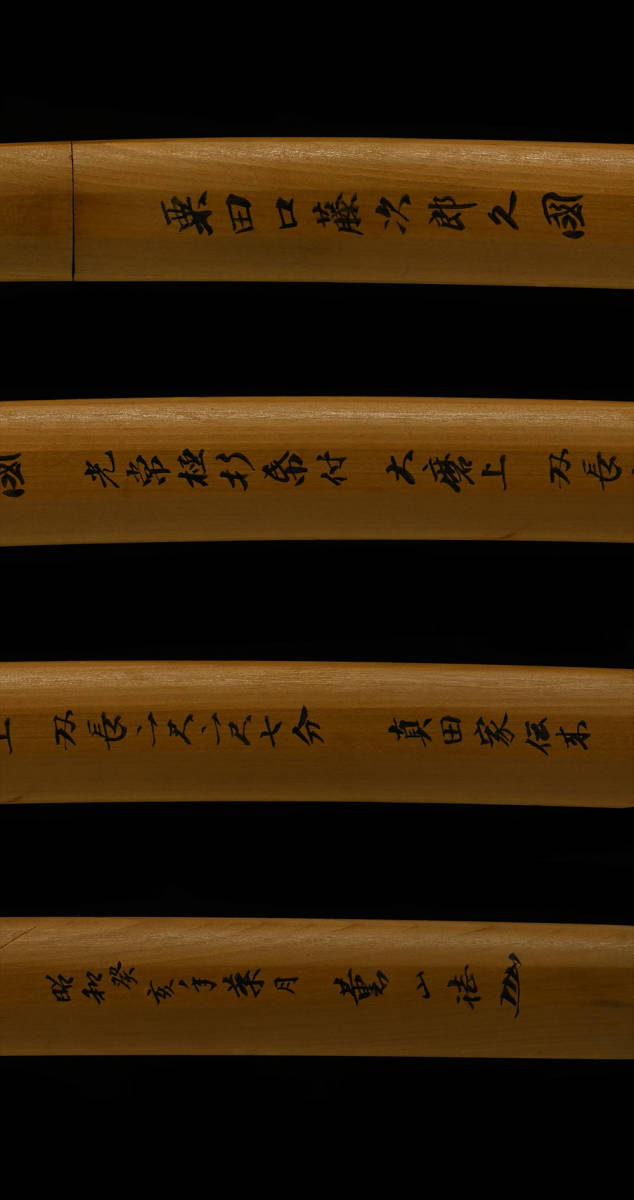 粟田口藤次郎久國
國 光常極折帋付 大磨上 刃長
上 刃長二尺二寸七分 真田家伝来
昭和癸亥ノ年葉月 薫山誌